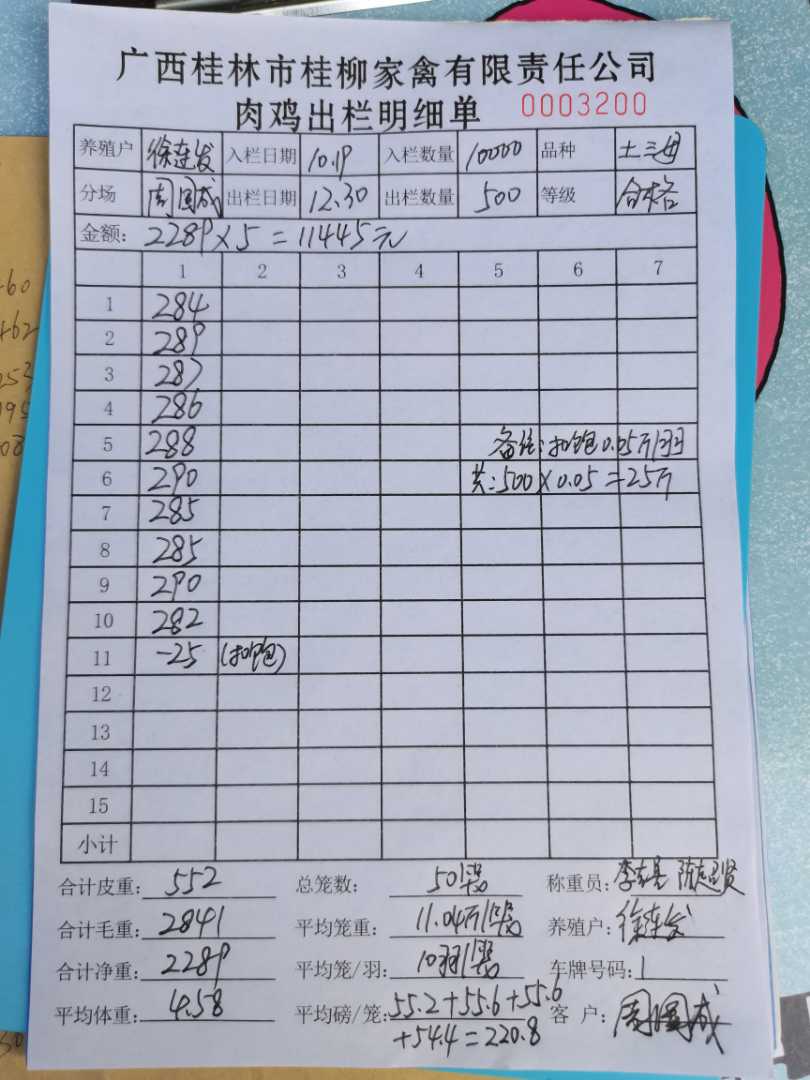 广西桂林市桂柳家禽有限责任公司
肉鸡出栏明细单 0003200
养殖户 徐连发 入栏日期 10.19 入栏数量 10000 品种 土三母
分场 周圆成 出栏日期 12.30 出栏数量 500 等级 合格
金额: 2289×5=11445元
1 2 3 4 5 6 7
1 284
2 289
3 287
4 286
5 288 备注:扣饱0.05斤/羽
6 290 共:500×0.05=25斤
7 285
8 285
9 290
10 282
11 -25 (扣饱)
12
13
14
15
小计
合计皮重: 552 总笼数: 50 称重员:
合计毛重: 2841 平均笼重: 11.04斤/ 养殖户: 徐连发
合计净重: 2289 平均笼/羽: 10羽/ 车牌号码:
平均体重: 4.58 平均磅/笼: 55.2+55.6+55.6 客户: 周圆成
+54.4=220.8
460
462
253
195
08
50